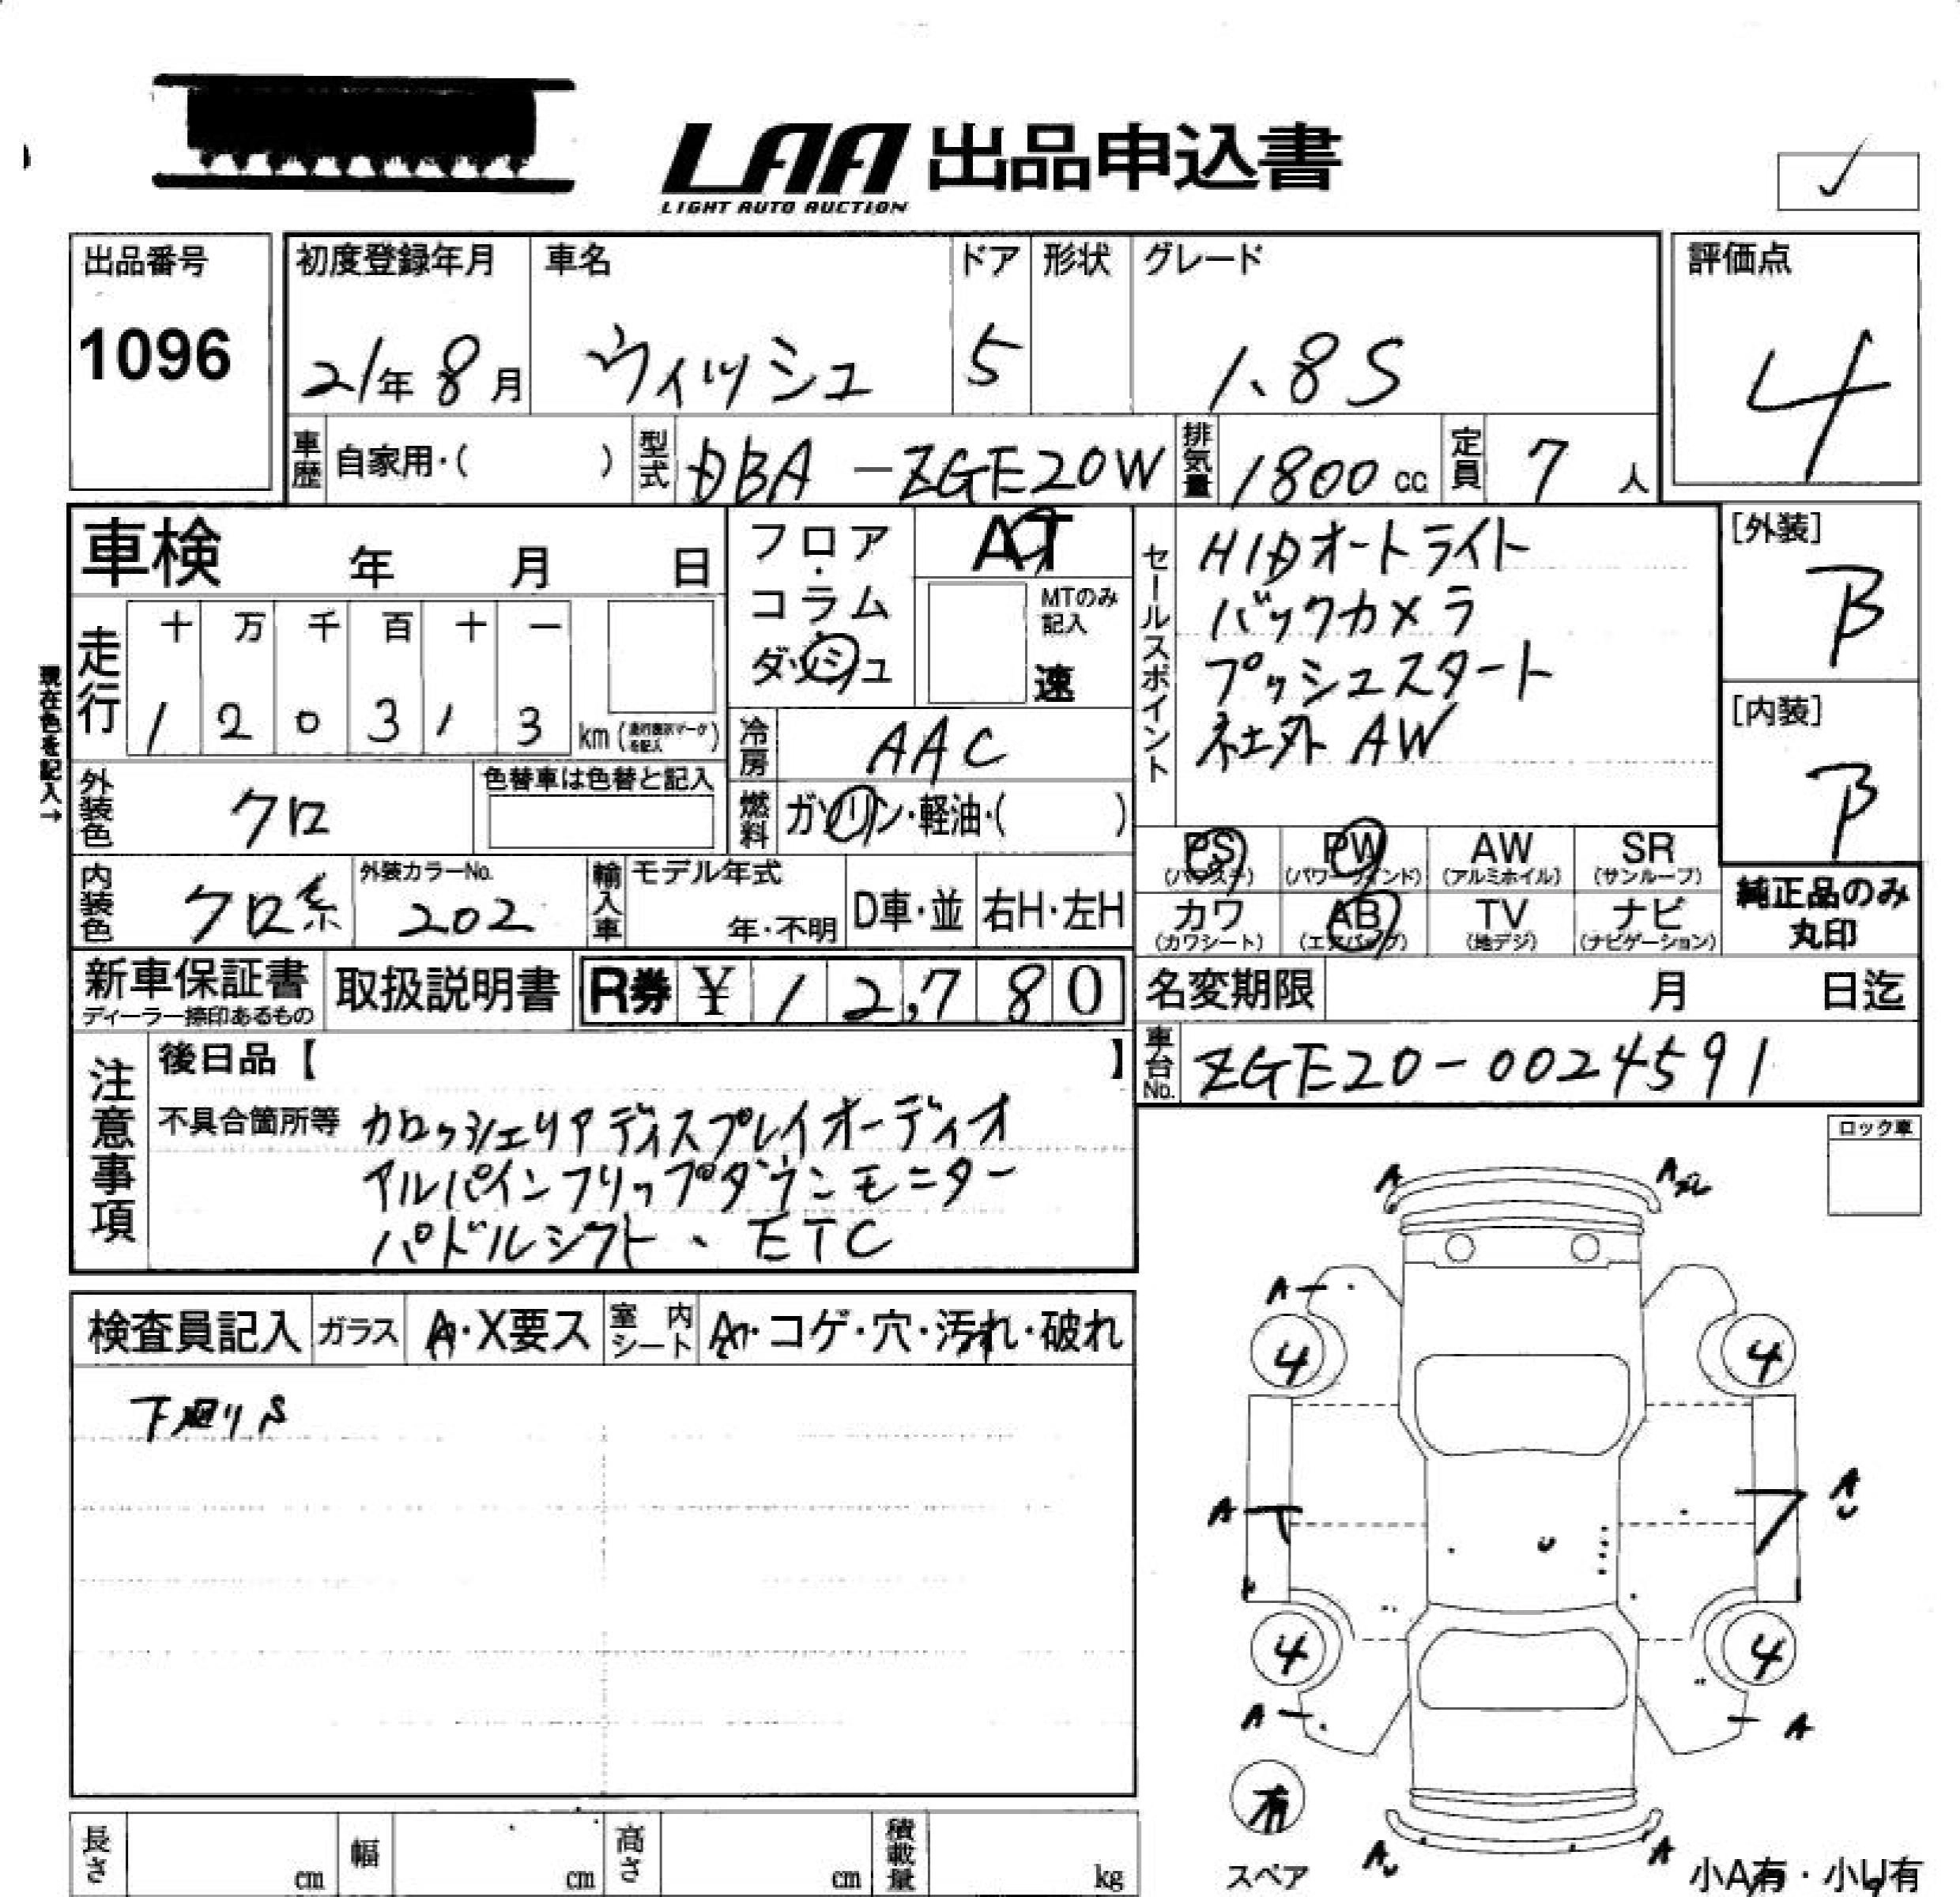 LAA 出品申込書
LIGHT AUTO AUCTION
✓
出品番号
1096
初度登録年月 車名 ドア 形状 グレード
21年 8月 ウィッシュ 5 1.8S
評価点
4
車歴 自家用・( ) 型式 DBA-ZGE20W 排気量 1800cc 定員 7人
車検 年 月 日
フロア・コラム・ダッシュ
AT
MTのみ記入
速
走行 十 万 千 百 十 一
1 2 0 3 1 3 km(走行表示マークを記入)
現在色を記入→
外装色 クロ 色替車は色替と記入
冷房 AAC
燃料 ガソリン・軽油・( )
内装色 クロ系 外装カラーNo. 202
輸入車 モデル年式 年・不明 D車・並 右H・左H
セールスポイント
HIDオートライト
バックカメラ
プッシュスタート
社外AW
[外装]
B
[内装]
B
PS PW AW SR
(パワステ) (パワーウインド) (アルミホイル) (サンルーフ)
カワ AB TV ナビ
(カワシート) (エアバッグ) (地デジ) (ナビゲーション)
純正品のみ
丸印
新車保証書 取扱説明書 R券 ¥12,780
ディーラー捺印あるもの
名変期限 月 日迄
車台No. ZGE20-0024591
注意事項
後日品【 】
不具合箇所等 カロッシェリアディスプレイオーディオ
アルパインフリップダウンモニター
パドルシフト、ETC
ロック車
検査員記入 ガラス A・X要ス 室内シート A・コゲ・穴・汚れ・破れ
下廻りS
A A
A
4 4
A A
4 4
A A
有
スペア
A A
小A有・小U有
長さ cm 幅 cm 高さ cm 積載量 kg